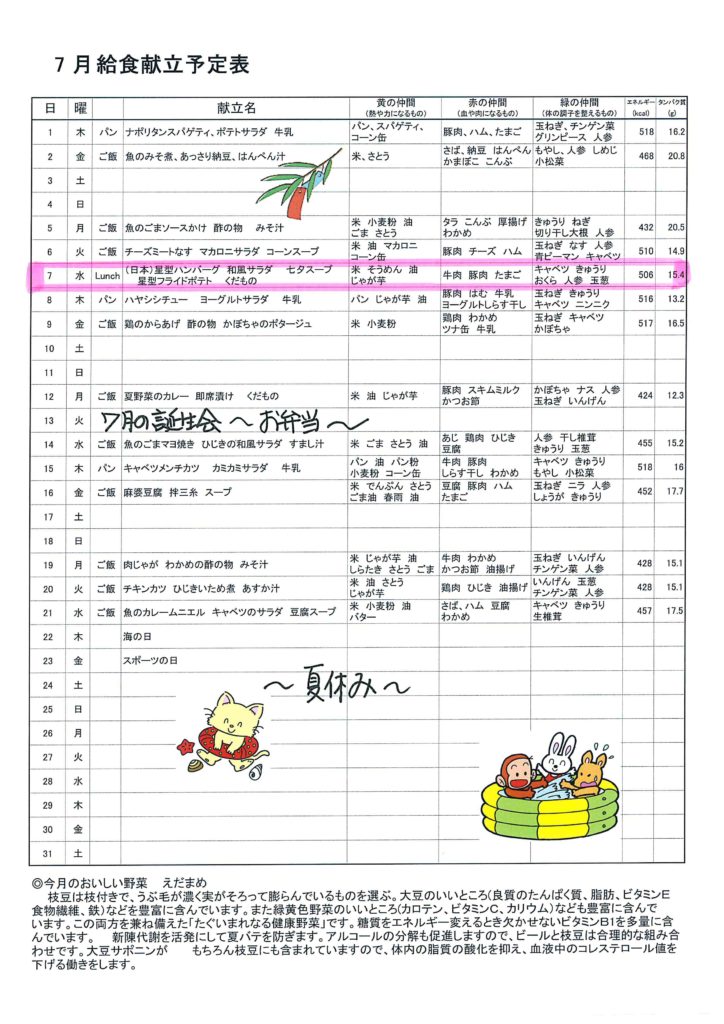 7月給食献立予定表
日 曜 献立名 黄の仲間 (熱や力になるもの) 赤の仲間 (血や肉になるもの) 緑の仲間 (体の調子を整えるもの) エネルギー (kcal) タンパク質 (g)
1 木 パン ナポリタンスパゲティ、ポテトサラダ 牛乳 パン、スパゲティ、コーン缶 豚肉、ハム、たまご 玉ねぎ、チンゲン菜 グリンピース 人参 518 16.2
2 金 ご飯 魚のみそ煮、あっさり納豆、はんぺん汁 米、さとう さば、納豆 はんぺん かまぼこ こんぶ もやし、人参 しめじ 小松菜 468 20.8
3 土
4 日
5 月 ご飯 魚のごまソースかけ 酢の物 みそ汁 米 小麦粉 油 ごま さとう タラ こんぶ 厚揚げ わかめ きゅうり ねぎ 切り干し大根 人参 432 20.5
6 火 ご飯 チーズミートなす マカロニサラダ コーンスープ 米 油 マカロニ コーン缶 豚肉 チーズ ハム 玉ねぎ なす 人参 青ピーマン キャベツ 510 14.9
7 水 Lunch (日本)星型ハンバーグ 和風サラダ 七夕スープ 星型フライドポテト くだもの 米 そうめん 油 じゃが芋 牛肉 豚肉 たまご キャベツ きゅうり おくら 人参 玉葱 506 15.4
8 木 パン ハヤシシチュー ヨーグルトサラダ 牛乳 パン じゃが芋 油 豚肉 はむ 牛乳 ヨーグルトしらす干し 玉ねぎ きゅうり キャベツ ニンニク 516 13.2
9 金 ご飯 鶏のからあげ 酢の物 かぼちゃのポタージュ 米 小麦粉 鶏肉 わかめ ツナ缶 牛乳 玉ねぎ キャベツ かぼちゃ 517 16.5
10 土
11 日
12 月 ご飯 夏野菜のカレー 即席漬け くだもの 米 油 じゃが芋 豚肉 スキムミルク かつお節 かぼちゃ ナス 人参 玉ねぎ いんげん 424 12.3
13 火 7月の誕生会 ～お弁当～
14 水 ご飯 魚のごまマヨ焼き ひじきの和風サラダ すまし汁 米 ごま さとう 油 あじ 鶏肉 ひじき 豆腐 人参 干し椎茸 きゅうり 玉葱 455 15.2
15 木 パン キャベツメンチカツ カミカミサラダ 牛乳 パン 油 パン粉 小麦粉 コーン缶 牛肉 豚肉 しらす干し わかめ キャベツ きゅうり もやし 小松菜 518 16
16 金 ご飯 麻婆豆腐 拌三糸 スープ 米 でんぷん さとう ごま油 春雨 油 豆腐 豚肉 ハム たまご 玉ねぎ ニラ 人参 しょうが きゅうり 452 17.7
17 土
18 日
19 月 ご飯 肉じゃが わかめの酢の物 みそ汁 米 じゃが芋 油 しらたき さとう ごま 牛肉 わかめ かつお節 油揚げ 玉ねぎ いんげん チンゲン菜 人参 428 15.1
20 火 ご飯 チキンカツ ひじきいため煮 あすか汁 米 油 さとう じゃが芋 鶏肉 ひじき 油揚げ いんげん 玉葱 チンゲン菜 人参 428 15.1
21 水 ご飯 魚のカレームニエル キャベツのサラダ 豆腐スープ 米 小麦粉 油 バター さば、ハム 豆腐 わかめ キャベツ きゅうり 生椎茸 457 17.5
22 木 海の日
23 金 スポーツの日
24 土 ～夏休み～
25 日
26 月
27 火
28 水
29 木
30 金
31 土
◎今月のおいしい野菜 えだまめ
枝豆は枝付きで、うぶ毛が濃く実がそろって膨らんでいるものを選ぶ。大豆のいいところ(良質のたんぱく質、脂肪、ビタミンE
食物繊維、鉄)などを豊富に含んでいます。また緑黄色野菜のいいところ(カロテン、ビタミンC、カリウム)なども豊富に含んで
います。この両方を兼ね備えた「たぐいまれなる健康野菜」です。糖質をエネルギー変えるとき欠かせないビタミンB1を多量に含
んでいます。 新陳代謝を活発にして夏バテを防ぎます。アルコールの分解も促進しますので、ビールと枝豆は合理的な組み合
わせです。大豆サポニンが もちろん枝豆にも含まれていますので、体内の脂質の酸化を抑え、血液中のコレステロール値を
下げる働きをします。